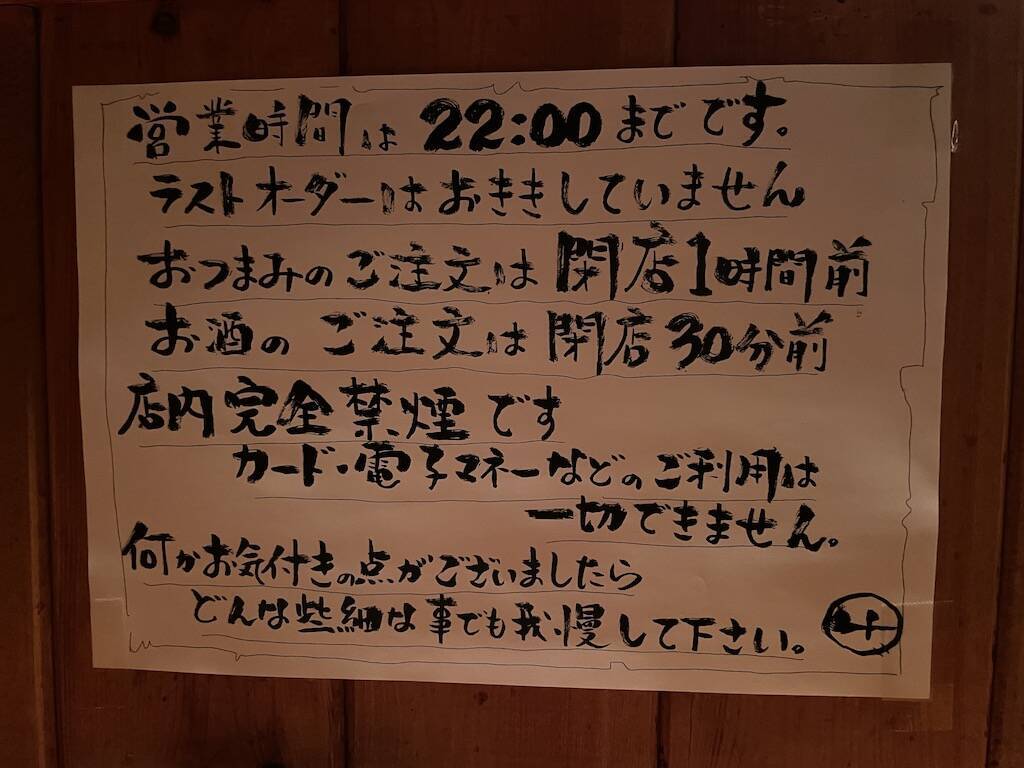 営業時間は22:00までです。
ラストオーダーはおききしていません
おつまみのご注文は閉店1時間前
お酒のご注文は閉店30分前
店内完全禁煙です
カード・電子マネーなどのご利用は
一切できません。
何かお気付きの点がございましたら
どんな些細な事でも我慢して下さい。